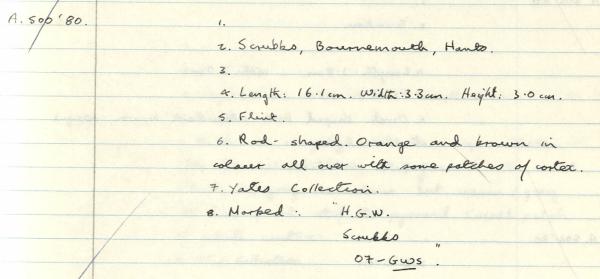 A. 500 '80.
1.
2. Scrubbs, Bournemouth, Hants.
3.
4. Length: 16.1cm. Width: 3.3cm. Height: 3.0cm.
5. Flint.
6. Rod-shaped. Orange and brown in
colour all over with some patches of cortex.
7. Yates Collection.
8. Marked: "H.G.W.
Scrubbs
07-GWS".